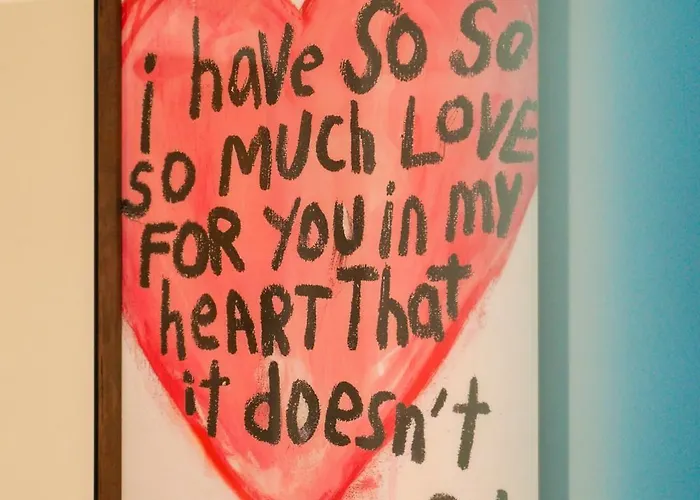 i have SO SO
SO MUCh LOVE
FOR YOU in my
heART That
it doesn't